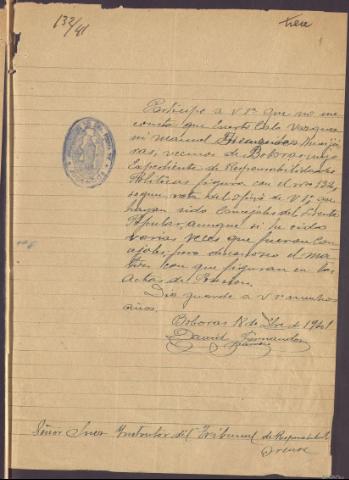 132/41
Participo a V S. que no me
consta que Evaristo Vazquez
ni Manuel Fernandez
vecinos de Boboras cuyo
Expediente de Responsabilidades
Politicas figura con el nº 132,
segun nota del oficio de V S, que
hayan sido Concejales del Frente
Popular, aunque si he oido
varias veces que fueron Con-
cejales, pero desconozco el ma-
tiz con que figuran en las
Actas de
Dios guarde a V S. muchos
años.
Boboras 18 de de 1941
David Fernandez
Señor Juez Instructor del Tribunal de Responsabilid
Orense